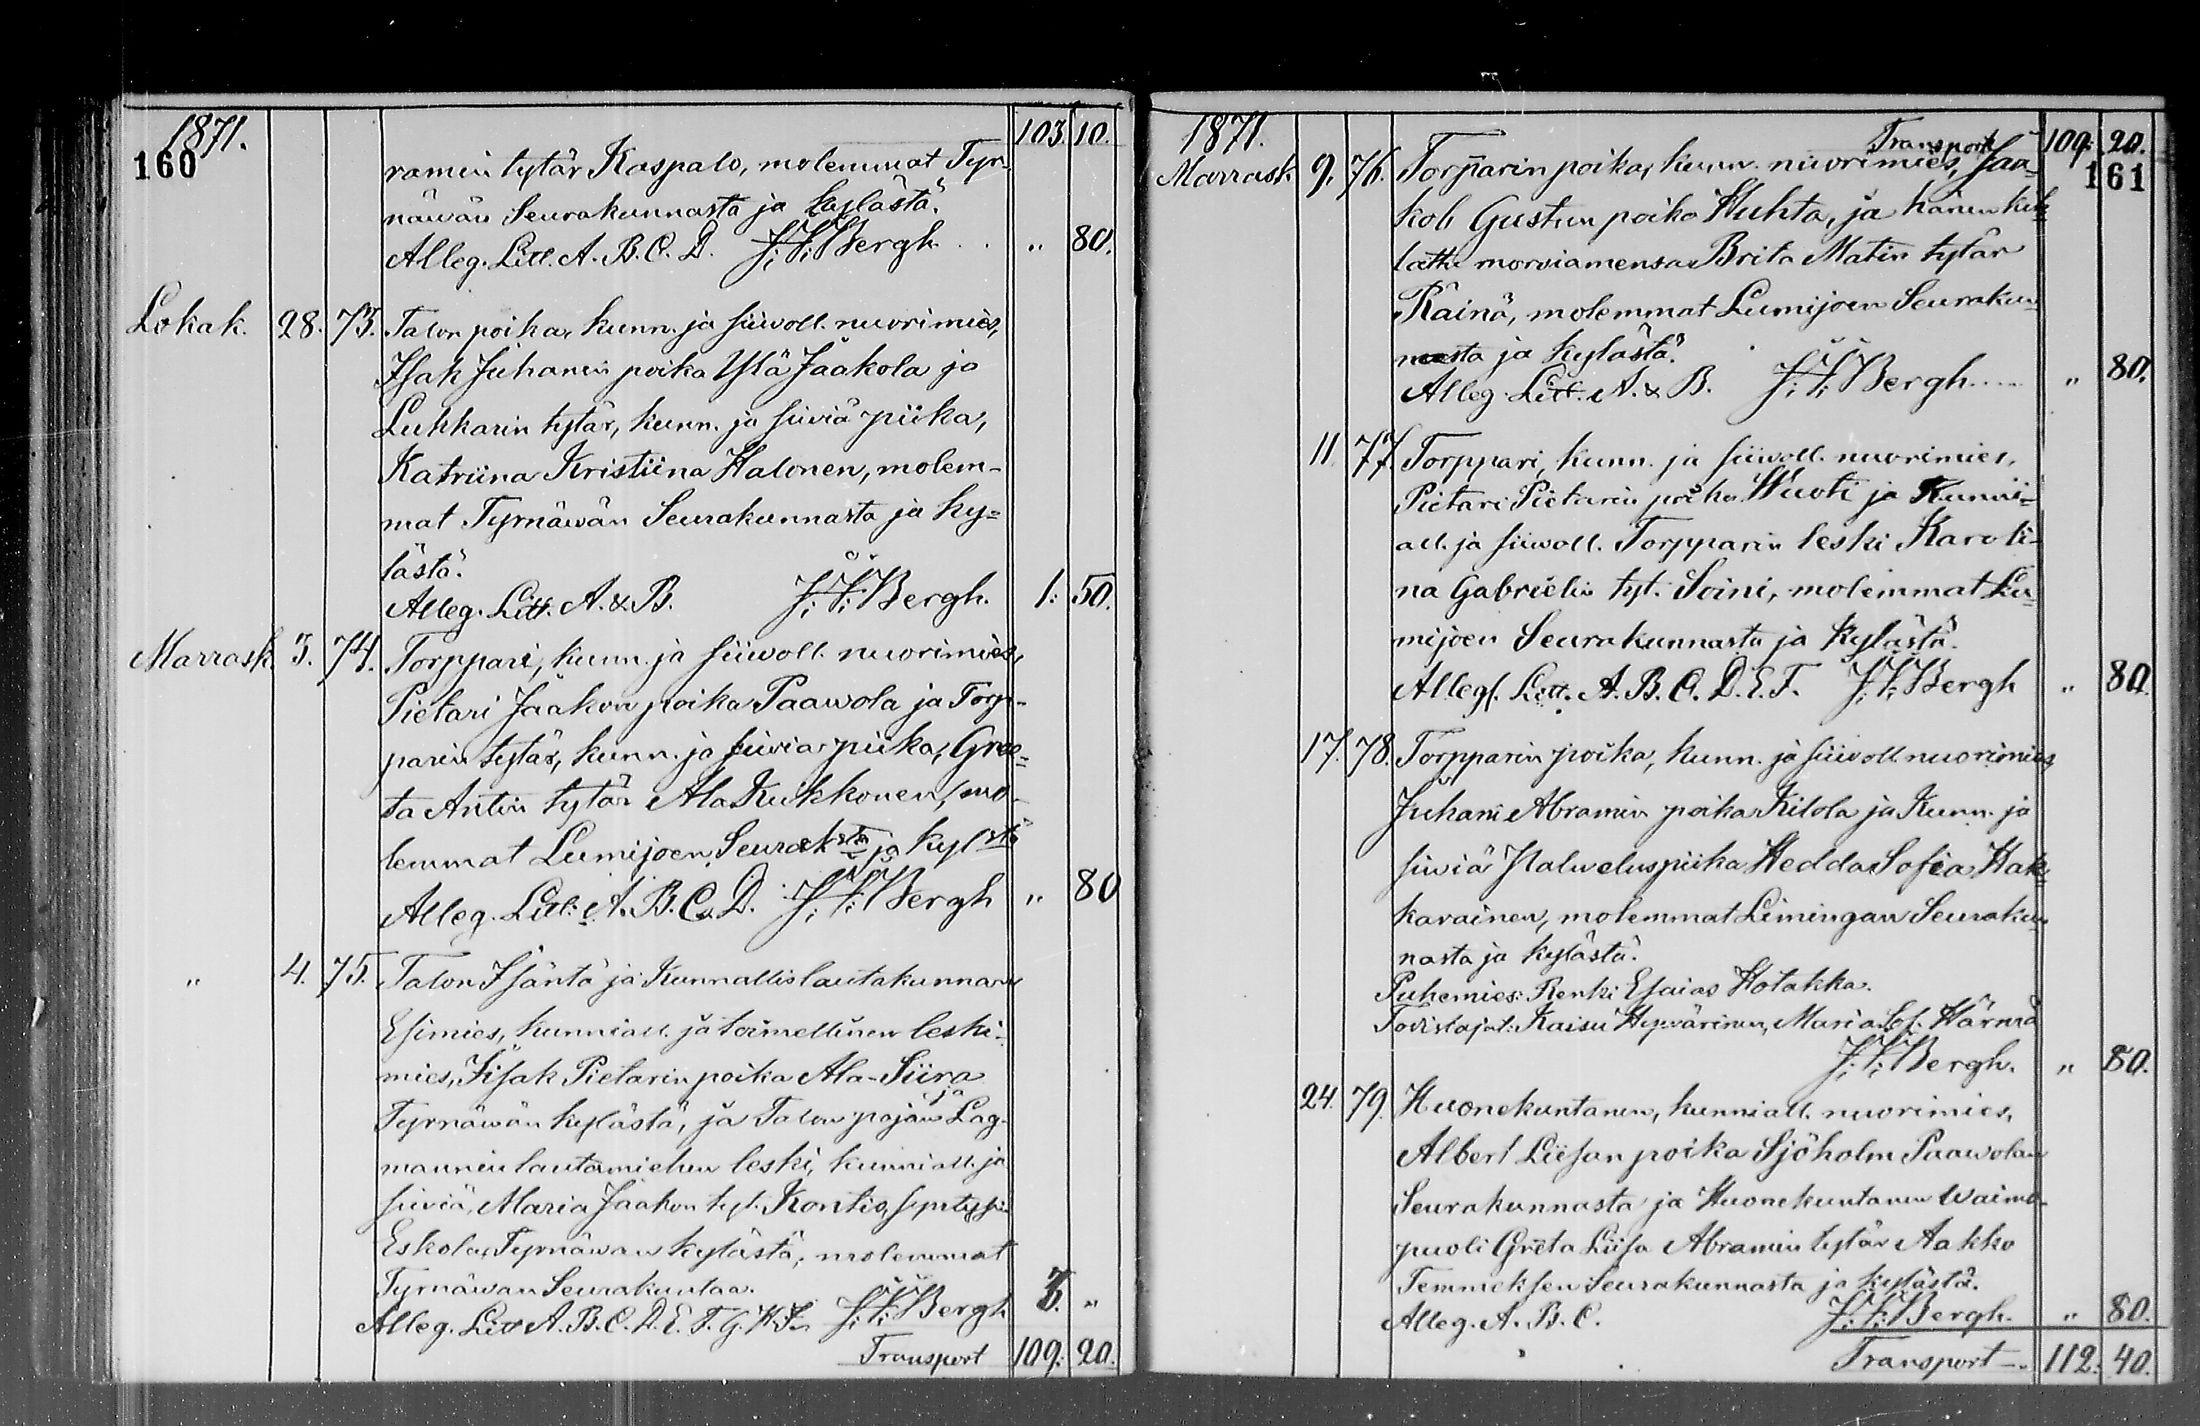 1871.
160
103. 10.
ramin tytär Kaspalo, molemmat Tyr-
näwän Seurakunnasta ja kylästä.
Alleg. Litt. A. B. C. D. J. F. Bergh. " 80.
Lokak. 28. 73. Talon poika, kunn. ja siiwoll. nuorimies,
Isak Juhanin poika Ylä Jaakola ja
Lukkarin tytär, kunn. ja siwiä piika,
Katriina Kristiina Halonen, molem-
mat Tyrnäwän Seurakunnasta ja ky-
lästä.
Alleg. Litt. A. & B. J. F. Bergh. 1: 50.
Marrask. 3. 74. Torppari, kunn. ja siiwoll. nuorimies,
Pietari Jaakon poika Paawola ja Torp-
parin tytär, kunn. ja siwiä piika, Gree-
ta Antin tytär Ala Kukkonen, mo-
lemmat Lumijoen Seurak:sta ja kyl:stä
Alleg. Litt. A. B. C. D. J. F. Bergh " 80
" 4. 75. Talon Isäntä ja Kunnallislautakunnan
Esimies, kunniall. ja toimellinen leski-
mies, Iisak Pietarin poika Ala-Siira
Tyrnäwän kylästä, ja Talon pojan ja Lag-
mannin lautamiehen leski, kunniall. ja
siwiä, Maria Jaakon tyt. Kontio,
Eskola, Tyrnäwän kylästä, molemmat
Tyrnäwän Seurakuntaa.
Alleg. Litt A. B. C. D. E. F. G. H. I. J. F. Bergh 3. "
Transport 109. 20.
1871.
Transport 109. 20.
161
Marrask. 9. 76. Torpparin poika, kunn. nuorimies, Jaa-
kob Gustun poika Huhta, ja hänen kih-
lattu morsiamensa Brita Matin tytär
Räinä, molemmat Lumijoen Seurakun-
nasta ja kylästä.
Alleg. Litt. A. & B. J. F. Bergh.... " 80.
11. 77. Torppari, kunn. ja siiwoll. nuorimies,
Pietari Pietarin poika Wuoti ja Kunni-
all. ja siiwoll. Torpparin leski Karoli-
na Gabrielin tyt. Soini, molemmat Lu-
mijoen Seurakunnasta ja Kylästä.
Alleg. Litt. A. B. C. D. E. F. J. F. Bergh " 80.
17. 78. Torpparin poika, kunn. ja siiwoll. nuorimies
Juhani Abramin poika Kilola ja Kunn. ja
siwiä Palweluspiika Hedda Sofia Hak-
karainen, molemmat Limingan Seurakun-
nasta ja kylästä.
Puhemies: Renki Esaias Hotakka.
Todistajat: Kaisu Hywärinen, Maria Sof. Härmä
J. F. Bergh. " 80.
24. 79. Huonekuntanen, kunniall. nuorimies,
Albert Liisan poika Sjöholm Paawolan
Seurakunnasta ja Huonekuntanen Waimo-
puoli Greta Liisa Abramin tytär Aakko
Temmeksen Seurakunnasta ja kylästä.
Alleg. A. B. C. J. F. Bergh. " 80.
Transport 112. 40.